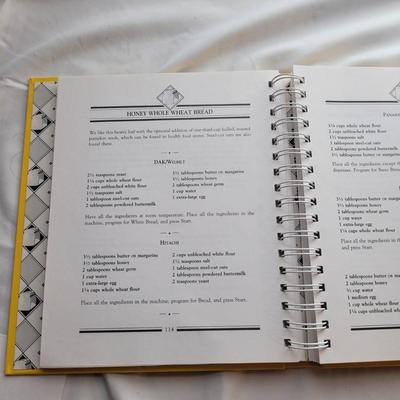 HONEY WHOLE WHEAT BREAD
We like this hearty loaf with the optional addition of one-third cup hulled, toasted
pumpkin seeds, which can be found in health food stores. Steel-cut oats are also
found there.
DAK/WELBILT
2½ teaspoons yeast
1¼ cups whole wheat flour
2 cups unbleached white flour
1½ teaspoons salt
1 tablespoon steel-cut oats
2 tablespoons powdered buttermilk
1½ tablespoons butter or margarine
1½ tablespoons honey
2 tablespoons wheat germ
1 cup water
1 extra-large egg
Have all the ingredients at room temperature. Place all the ingredients in the
machine, program for White Bread, and press Start.
HITACHI
1½ tablespoons butter or margarine
1½ tablespoons honey
2 tablespoons wheat germ
1 cup water
1 extra-large egg
1¼ cups whole wheat flour
2 cups unbleached white flour
1½ teaspoons salt
1 tablespoon steel-cut oats
2 tablespoons powdered buttermilk
2 teaspoons yeast
Place all the ingredients in the machine, program for Bread, and press Start.
114
PANASO
cups whole wheat flour
2 cups unbleached white flour
teaspoons salt
1 tablespoon steel-cut oats
2 tablespoons powdered buttermilk
tablespoons butter or margarine
Place all the ingredients except the
Program for Basic Bread
tablespoons butter or margarine
tablespoons honey
2 tablespoons wheat germ
1 cup water
1 extra-large egg
cups whole wheat flour
Place all the ingredients in the
2 tablespoons butter or
2 tablespoons honey
2 tablespoons wheat germ
cup water
1 medium egg
1 cup whole wheat flour
cups unbleached white